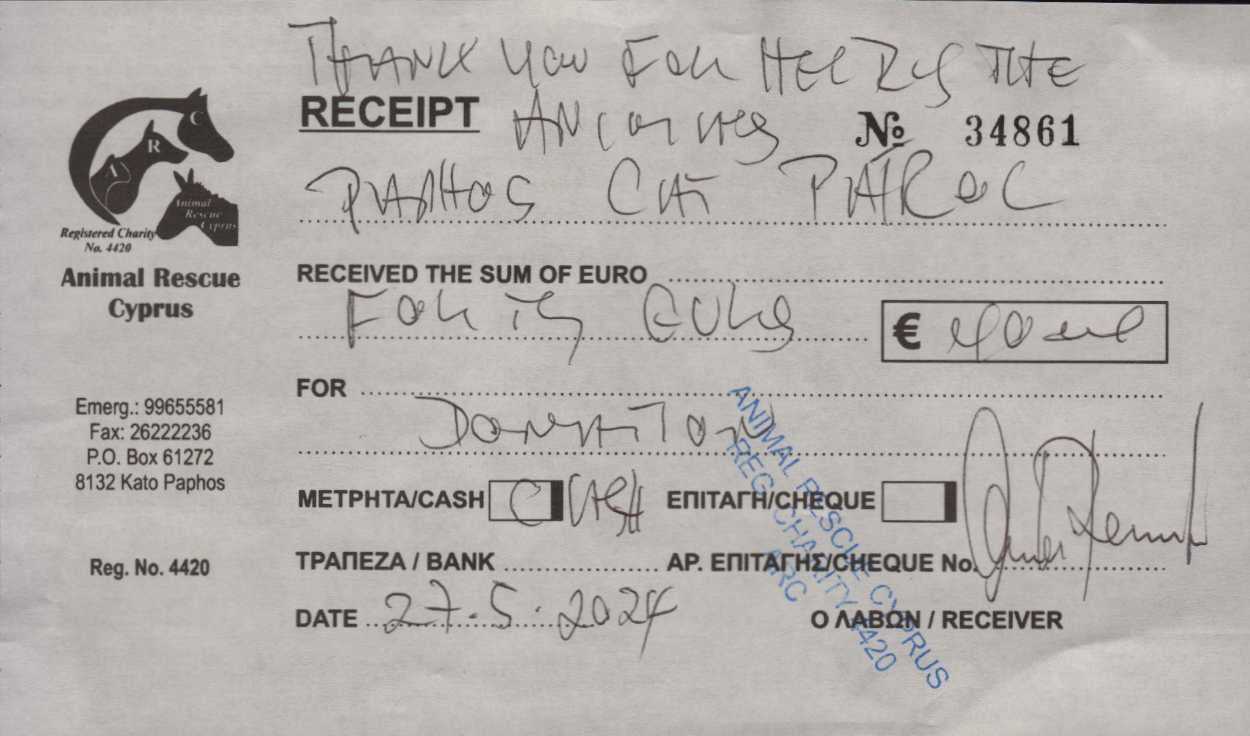 THANK YOU FOR HELPING THE
RECEIPT
ANIMALS
№ 34861
PAPHOS CAT PATROL
A R C
Animal
Rescue
Cyprus
Registered Charity
No. 4420
Animal Rescue
Cyprus
RECEIVED THE SUM OF EURO
FORTY EUROS
€ 40
FOR
DONATION
Emerg.: 99655581
Fax: 26222236
P.O. Box 61272
8132 Kato Paphos
ΜΕΤΡΗΤΑ/CASH CASH ΕΠΙΤΑΓΗ/CHEQUE
Reg. No. 4420
ΤΡΑΠΕΖΑ / BANK ΑΡ. ΕΠΙΤΑΓΗΣ/CHEQUE No.
DATE 27.5.2024
Ο ΛΑΒΩΝ / RECEIVER
ANIMAL RESCUE CYPRUS
REG CHARITY 4420
ARC